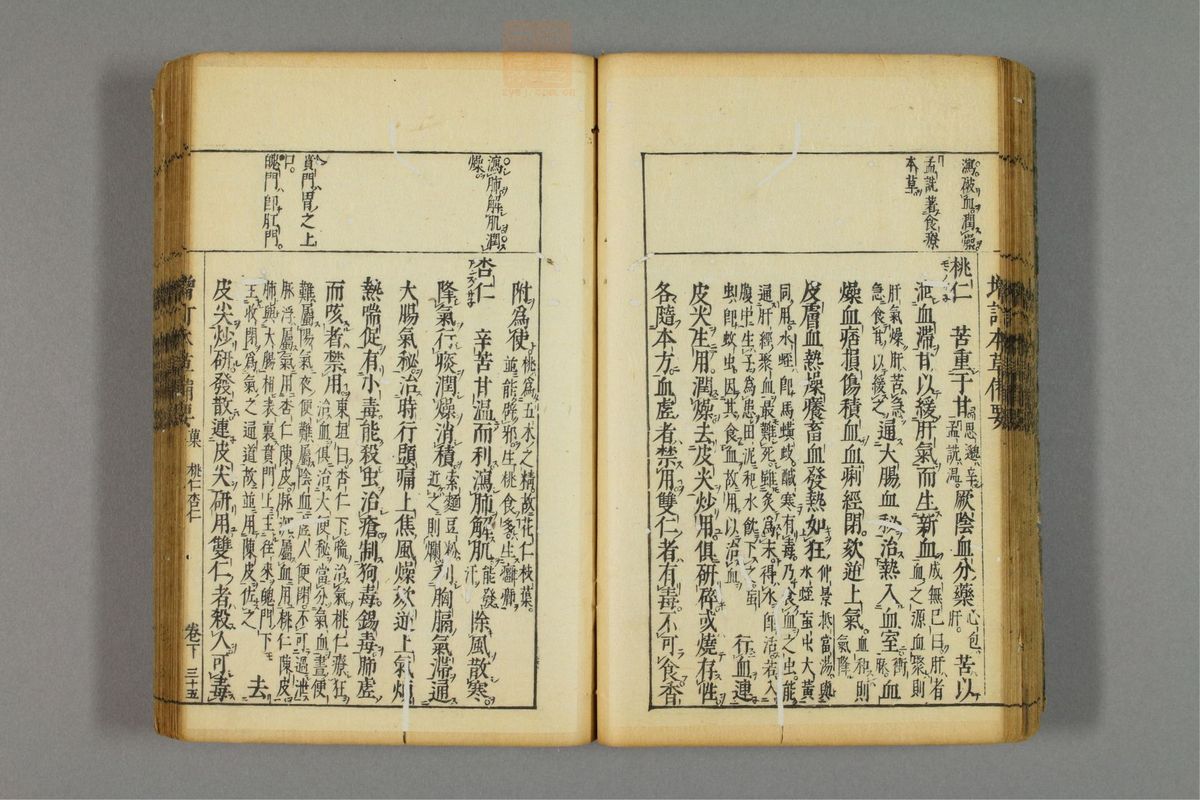 增訂本草備要
瀉破血潤燥
孟詵著食療
本草
桃仁 苦重于甘 思邈辛 孟詵溫 厥陰血分藥 心包 肝 苦以
泄血滯甘以緩肝氣而生新血 成無己曰肝者 血之源血聚則
肝氣燥肝苦急 急食甘以緩之 通大腸血秘治熱入血室 衝 脈 血
燥血痞損傷積血血痢經閉欬逆上氣 血和則 氣降
皮膚血熱燥癢畜血發熱如狂 仲景抵當湯與 水蛭䖟虫大黃
同用水蛭即馬蟥蚑鹹寒有毒乃食血之虫能
通肝經聚血最難死雖炙為末得水即活若入
腹中生子為患田泥和水飲下之䖟
虫即蚊虫因其食血故用以治血 行血連
皮尖生用潤燥去皮尖炒用俱研碎或燒存性
各隨本方血虛者禁用雙仁者有毒不可食香
瀉肺解肌潤
燥
賁門胃之上
口
魄門即肛門
附為使 桃為五木之精故花仁枝葉 並能辟邪生桃食多生癰癤
杏仁 辛苦甘温而利瀉肺解肌 能發 汗 除風散寒
降氣行痰潤燥消積 索麵豆粉 近之則爛 利胸膈氣滯通
大腸氣秘治時行頭痛上焦風燥欬逆上氣煩
熱喘促有小毒能殺虫治瘡制狗毒錫毒肺虛
而咳者禁用 東垣曰杏仁下喘治氣桃仁療狂 治血俱治大便秘當分氣血晝便
難屬陽氣夜便難屬陰血虛人便閉不可過泄
脉浮屬氣用杏仁陳皮脉沉屬血用桃仁陳皮
肺與大腸相表裏賁門上主往來魄門下
主收閉為氣之通道故並用陳皮佐之 去
皮尖炒研發散連皮尖研用雙仁者殺人可毒
增訂本草備要 菓 桃仁杏仁 卷下 三十五